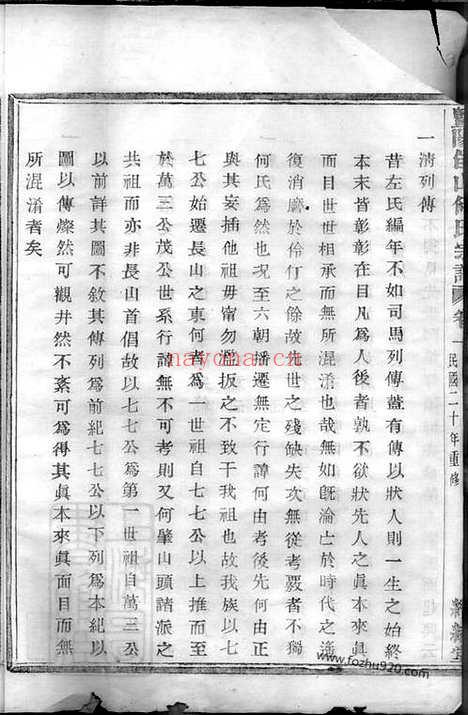 民國二十年重修
一清列傳
昔左氏編年不如司馬列傳蓋有傳以狀人則一生之始終
本末皆彰彰在目凡爲人後者孰不欲狀先人之眞本來眞
面目世世相承而無所混淆也哉無如旣淪亡於時代之
復消磨於伶仃之餘故先世之殘缺失次無從考覈者不獨
何氏爲然也況至六朝播遷無定行諱何由者後先何由正
與其妄插他祖毋甯勿濫扳之不致干我祖也故我族以七
七公始遷長山之東何者爲一世祖自七七公以上推而至
於萬三公茂公世系行諱無不可考則又何肇山頭諸派之
共祖而亦非長山首倡故以七七公爲第一世祖自萬三公
以前詳其圖不敘其傳列爲前紀七七公以下列爲本紀以
圖以傳燦然可觀井然不紊可爲得其眞本來眞面目而無
所混淆者矣
nayona.cn
www.fozhu920.com